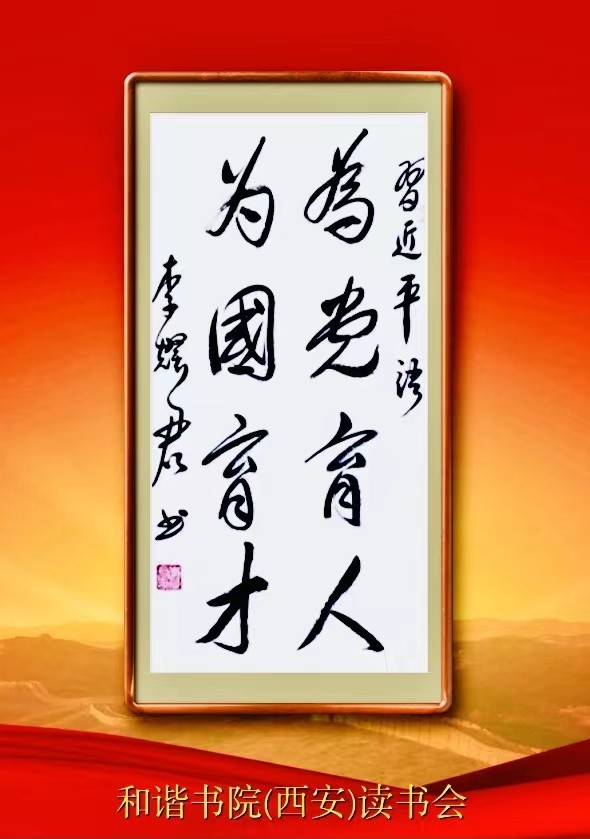 習近平语
為党育人
为國育才
李耀君书
和谐书院(西安)读书会